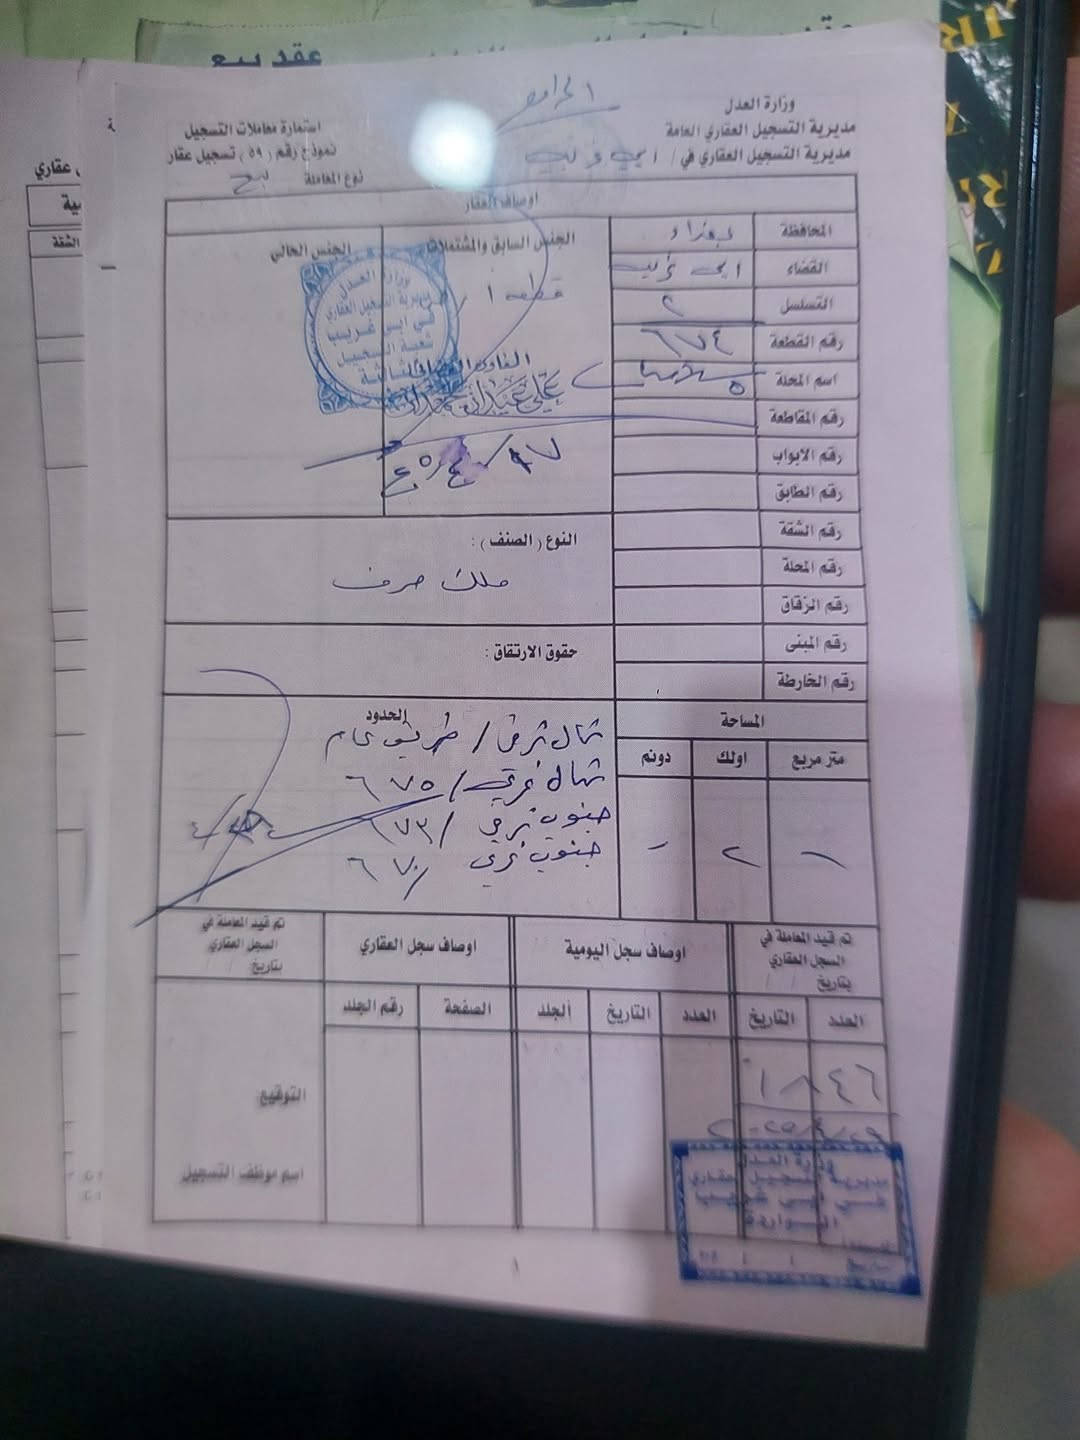 عقد بيع
وزارة العدل
مديرية التسجيل العقاري العامة
مديرية التسجيل العقاري في / ابي غريب
استمارة معاملات التسجيل
نموذج رقم (٥٩) تسجيل عقار
نوع المعاملة بيع
اوصاف العقار
المحافظة بغداد
القضاء ابي غريب
التسلسل ٢
رقم القطعة ٦٧٤
اسم المحلة
رقم المقاطعة
رقم الابواب
رقم الطابق
رقم الشقة
رقم المحلة
رقم الزقاق
رقم المبنى
رقم الخارطة
الجنس السابق والمشتملات
قطعة
الجنس الحالي
وزارة العدل
مديرية التسجيل العقاري
في ابي غريب
شعبة التسجيل
النوع (الصنف) :
ملك صرف
حقوق الارتفاق :
المساحة
متر مربع اولك دونم
٢ -
الحدود
شمال شرقي / طريق عام
شمال غربي / ٦٧٥
جنوب شرقي / ٦٧٣
جنوب غربي / ٦٧٠
تم قيد المعاملة في السجل العقاري بتاريخ / /
اوصاف سجل اليومية
اوصاف سجل العقاري
تم قيد المعاملة في السجل العقاري بتاريخ / /
العدد التاريخ العدد التاريخ الجلد الصفحة رقم الجلد
١٨٤٦
التوقيع
اسم موظف التسجيل
وزارة العدل
مديرية التسجيل العقاري
في ابي غريب
الواردة
١
عقاري
الشقة